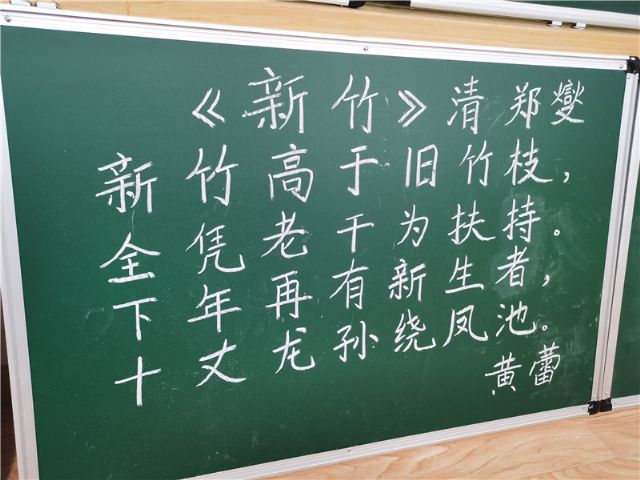 《新竹》清 郑燮
新竹高于旧竹枝，
全凭老干为扶持。
下年再有新生者，
十丈龙孙绕凤池。
黄蕾